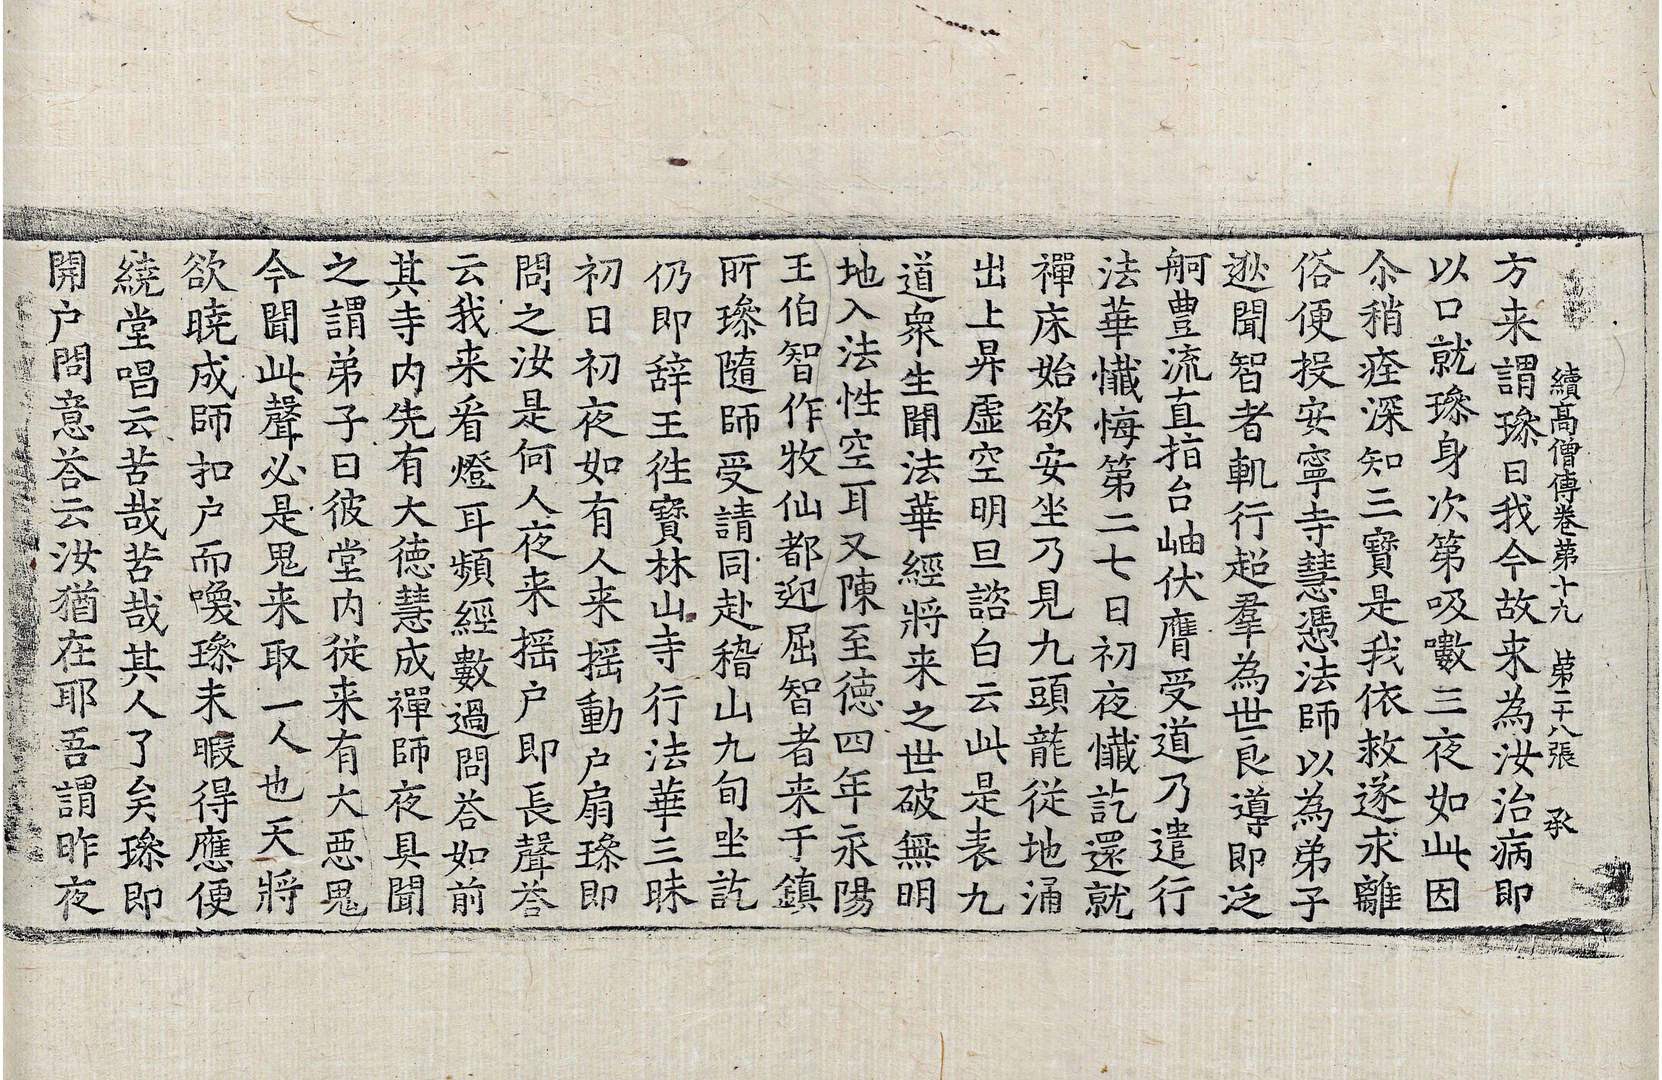 續高僧傳卷第十九 第二十八張 承
方来謂璪曰我今故来為汝治病即
以口就璪身次第吸嗽三夜如此因
尒稍痊深知三寶是我依救遂求離
俗便投安寧寺慧憑法師以為弟子
逖聞智者軌行超羣為世良導即泛
舸豊流直指台岫伏膺受道乃遣行
法華懺悔第二七日初夜懺訖還就
禪床始欲安坐乃見九頭龍從地涌
出上昇虛空明旦諮白云此是表九
道衆生聞法華經將来之世破無明
地入法性空耳又陳至德四年永陽
王伯智作牧仙都迎屈智者来于鎮
所璪隨師受請同赴稽山九旬坐訖
仍即辞王徃寶林山寺行法華三昧
初日初夜如有人来揺動户扇璪即
問之汝是何人夜来揺户即長聲荅
云我来看燈耳頻經數過問荅如前
其寺内先有大德慧成禪師夜具聞
之謂弟子曰彼堂内從来有大惡鬼
今聞此聲必是鬼来取一人也天將
欲曉成師扣户而喚璪未暇得應便
繞堂唱云苦哉苦哉其人了矣璪即
開户問意荅云汝猶在耶吾謂昨夜